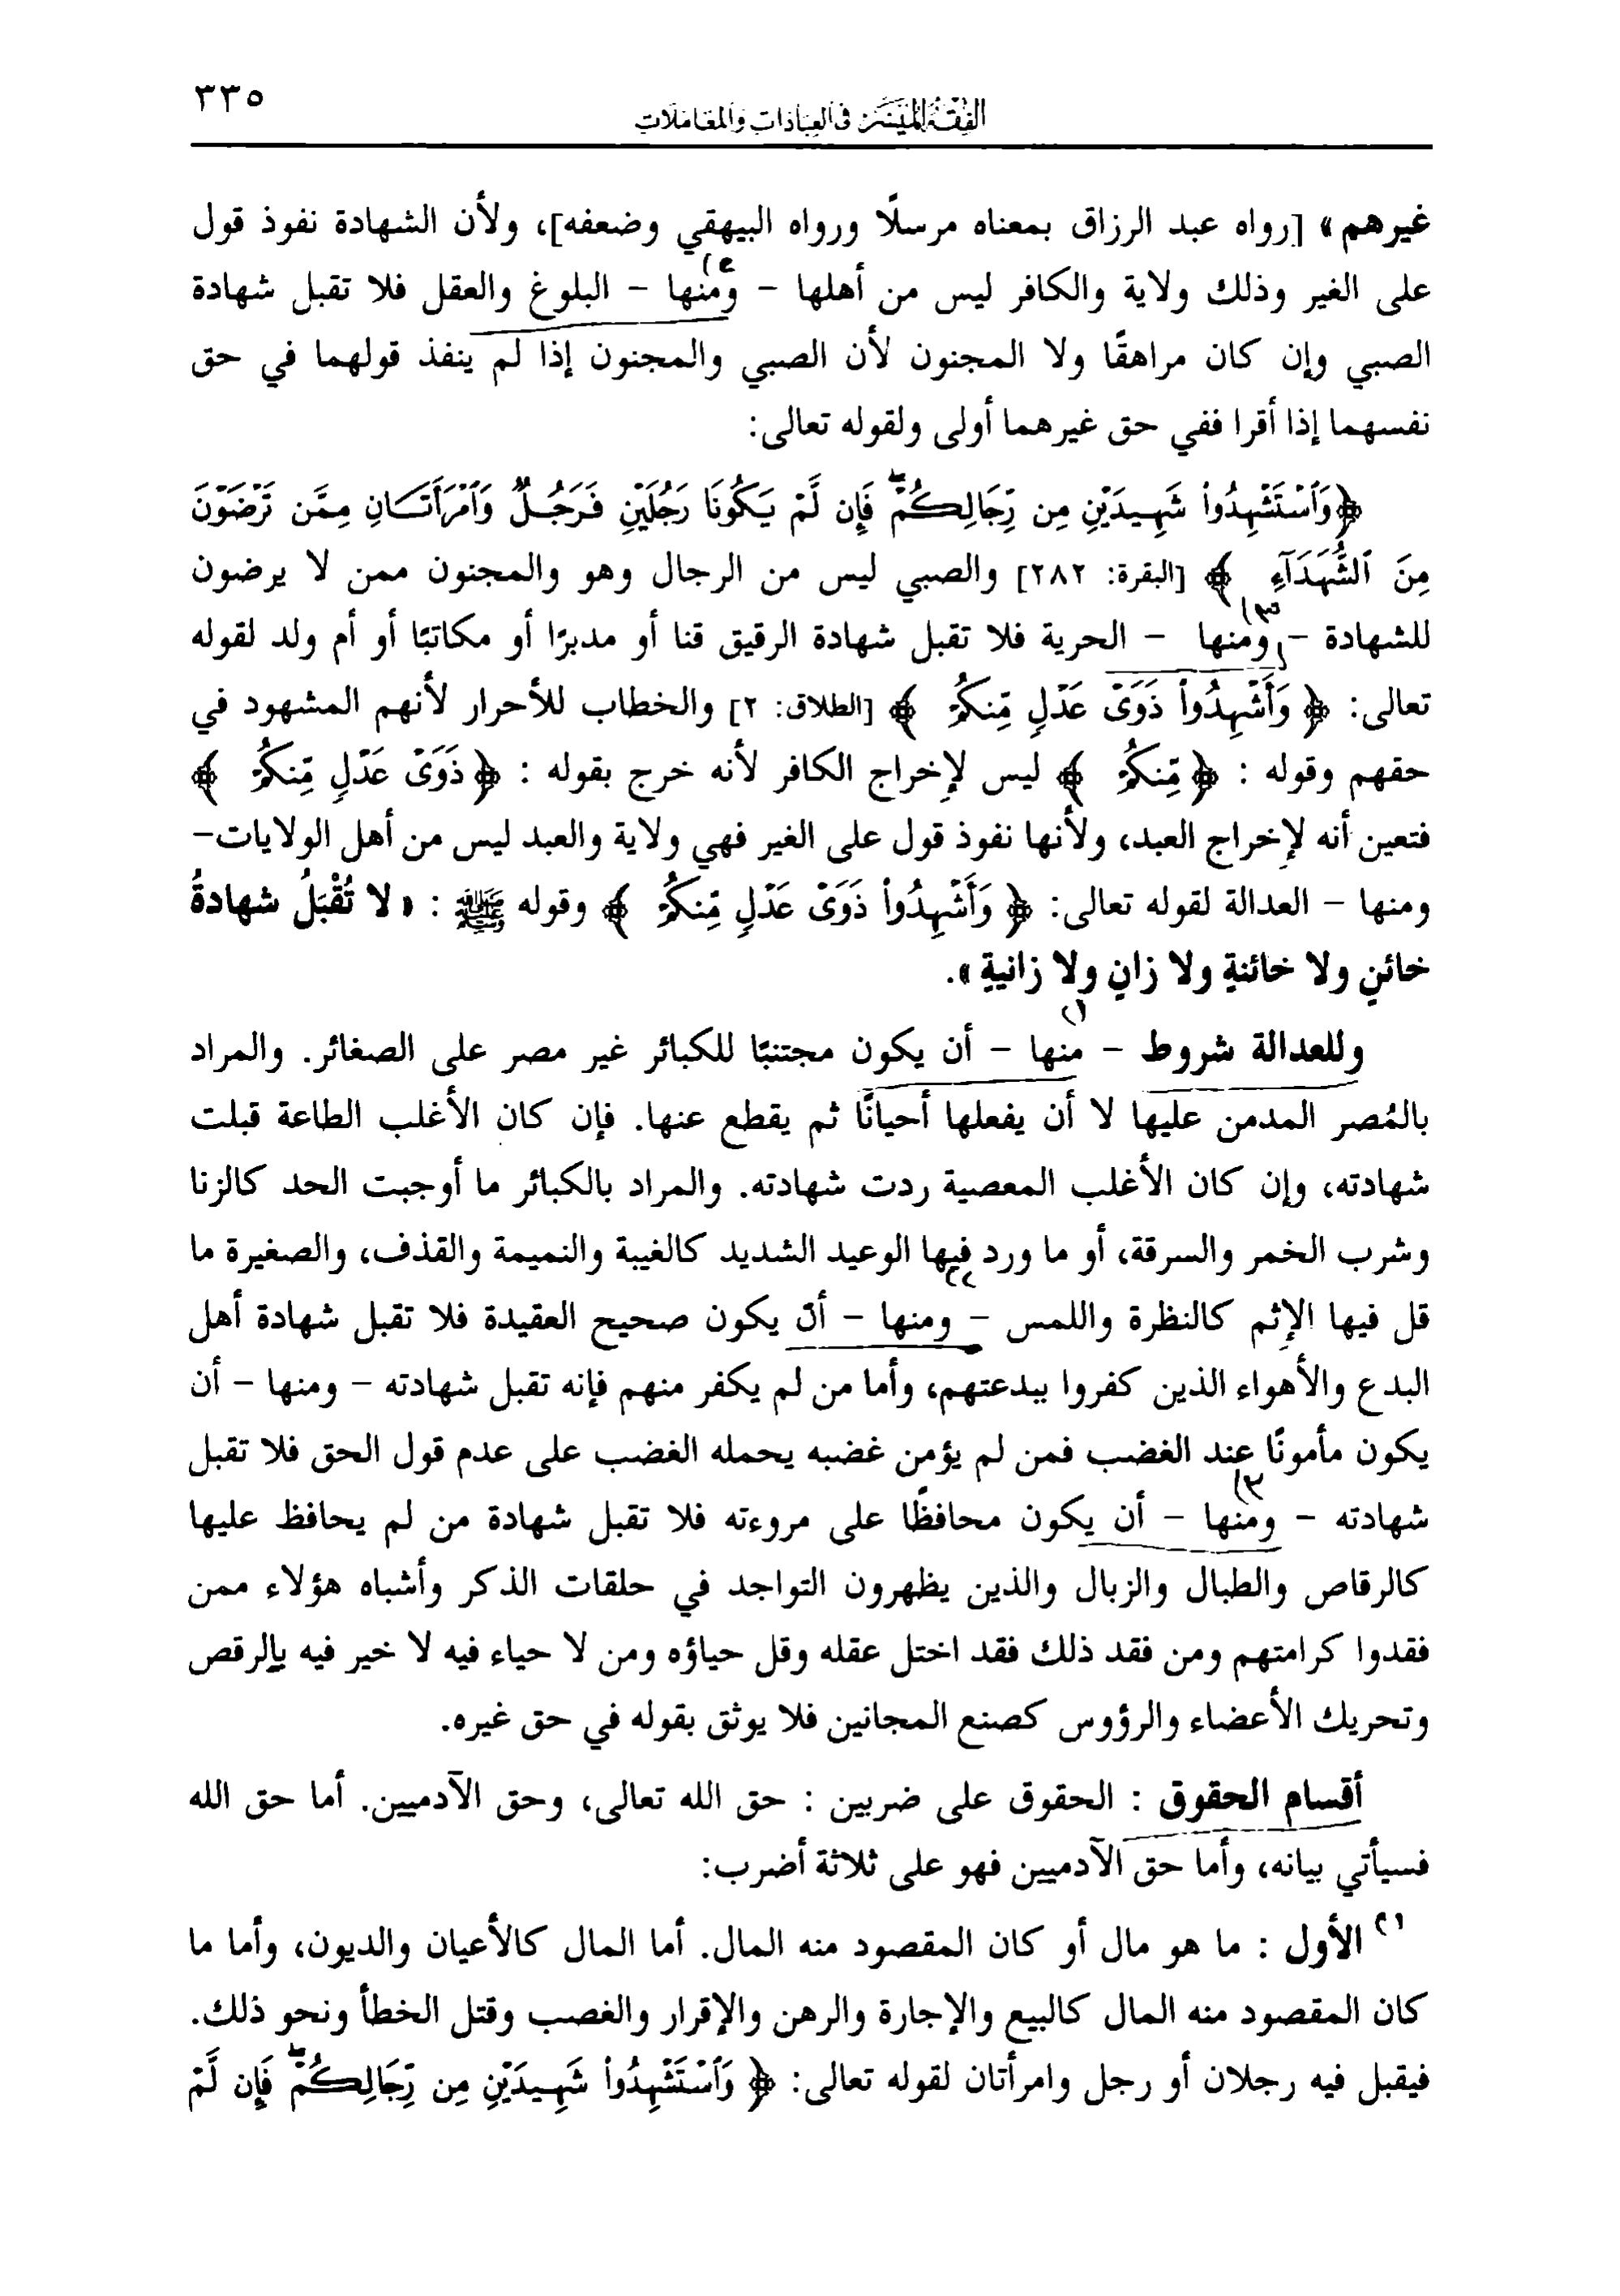 ٣٣٥
الفقه الميسر في العبادات والمعاملات
غيرهم» [رواه عبد الرزاق بمعناه مرسلًا ورواه البيهقي وضعفه]، ولأن الشهادة نفوذ قول
على الغير وذلك ولاية والكافر ليس من أهلها – ومنها – البلوغ والعقل فلا تقبل شهادة
الصبي وإن كان مراهقًا ولا المجنون لأن الصبي والمجنون إذا لم ينفذ قولهما في حق
نفسهما إذا أقرا ففي حق غيرهما أولى ولقوله تعالى:
﴿وَٱسْتَشْهِدُواْ شَهِيدَيْنِ مِن رِّجَالِكُمْ ۖ فَإِن لَّمْ يَكُونَا رَجُلَيْنِ فَرَجُلٌ وَٱمْرَأَتَانِ مِمَّن تَرْضَوْنَ
مِنَ ٱلشُّهَدَآءِ ﴾ [البقرة: ٢٨٢] والصبي ليس من الرجال وهو والمجنون ممن لا يرضون
للشهادة – ومنها – الحرية فلا تقبل شهادة الرقيق قنا أو مدبرًا أو مكاتبًا أو أم ولد لقوله
تعالى: ﴿ وَأَشْهِدُواْ ذَوَىْ عَدْلٍ مِّنكُمْ ﴾ [الطلاق: ٢] والخطاب للأحرار لأنهم المشهود في
حقهم وقوله : ﴿ مِّنكُمْ ﴾ ليس لإخراج الكافر لأنه خرج بقوله : ﴿ ذَوَىْ عَدْلٍ مِّنكُمْ ﴾
فتعين أنه لإخراج العبد، ولأنها نفوذ قول على الغير فهي ولاية والعبد ليس من أهل الولايات–
ومنها – العدالة لقوله تعالى: ﴿ وَأَشْهِدُواْ ذَوَىْ عَدْلٍ مِّنكُمْ ﴾ وقوله ﷺ : « لا تُقْبَلُ شهادةُ
خائنٍ ولا خائنةٍ ولا زانٍ ولا زانيةٍ ».
وللعدالة شروط – منها – أن يكون مجتنبًا للكبائر غير مصر على الصغائر. والمراد
بالمُصر المدمن عليها لا أن يفعلها أحيانًا ثم يقطع عنها. فإن كان الأغلب الطاعة قبلت
شهادته، وإن كان الأغلب المعصية ردت شهادته. والمراد بالكبائر ما أوجبت الحد كالزنا
وشرب الخمر والسرقة، أو ما ورد فيها الوعيد الشديد كالغيبة والنميمة والقذف، والصغيرة ما
قل فيها الإثم كالنظرة واللمس – ومنها – أن يكون صحيح العقيدة فلا تقبل شهادة أهل
البدع والأهواء الذين كفروا ببدعتهم، وأما من لم يكفر منهم فإنه تقبل شهادته – ومنها – أن
يكون مأمونًا عند الغضب فمن لم يؤمن غضبه يحمله الغضب على عدم قول الحق فلا تقبل
شهادته – ومنها – أن يكون محافظًا على مروءته فلا تقبل شهادة من لم يحافظ عليها
كالرقاص والطبال والزبال والذين يظهرون التواجد في حلقات الذكر وأشباه هؤلاء ممن
فقدوا كرامتهم ومن فقد ذلك فقد اختل عقله وقل حياؤه ومن لا حياء فيه لا خير فيه بالرقص
وتحريك الأعضاء والرؤوس كصنع المجانين فلا يوثق بقوله في حق غيره.
أقسام الحقوق : الحقوق على ضربين : حق الله تعالى، وحق الآدميين. أما حق الله
فسيأتي بيانه، وأما حق الآدميين فهو على ثلاثة أضرب:
الأول : ما هو مال أو كان المقصود منه المال. أما المال كالأعيان والديون، وأما ما
كان المقصود منه المال كالبيع والإجارة والرهن والإقرار والغصب وقتل الخطأ ونحو ذلك.
فيقبل فيه رجلان أو رجل وامرأتان لقوله تعالى: ﴿ وَٱسْتَشْهِدُواْ شَهِيدَيْنِ مِن رِّجَالِكُمْ ۖ فَإِن لَّمْ